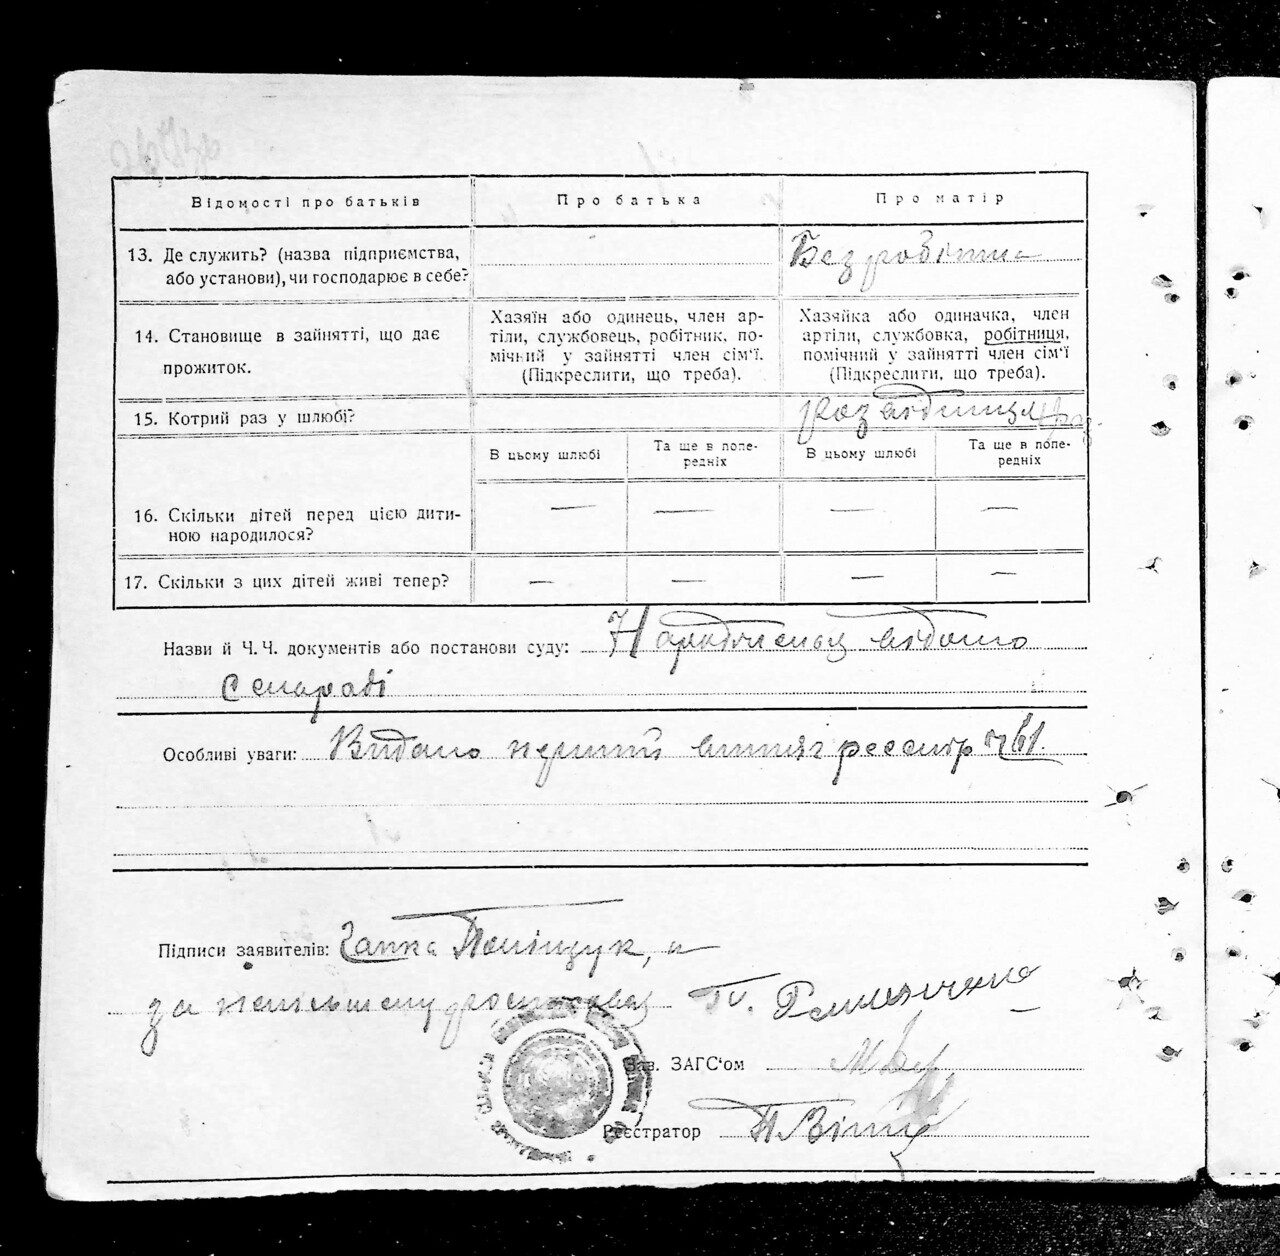 Відомості про батьків
Про батька
Про матір
13. Де служить? (назва підприємства,
або установи), чи господарює в себе?
Безробітна
14. Становище в зайнятті, що дає
прожиток.
Хазяїн або одинець, член ар-
тіли, службовець, робітник, по-
мічний у зайнятті член сім'ї.
(Підкреслити, що треба).
Хазяйка або одиначка, член
артіли, службовка, робітниця,
помічний у зайнятті член сім'ї
(Підкреслити, що треба).
15. Котрий раз у шлюбі?
В цьому шлюбі
Та ще в попе-
редніх
В цьому шлюбі
Та ще в попе-
редніх
16. Скільки дітей перед цією дити-
ною народилося?
— — — —
17. Скільки з цих дітей живі тепер?
— — — —
Назви й Ч. Ч. документів або постанови суду:
Особливі уваги: Видано перший витяг
Підписи заявителів: Ганка Поліщук, а
за
Зав. ЗАГС'ом
Реєстратор